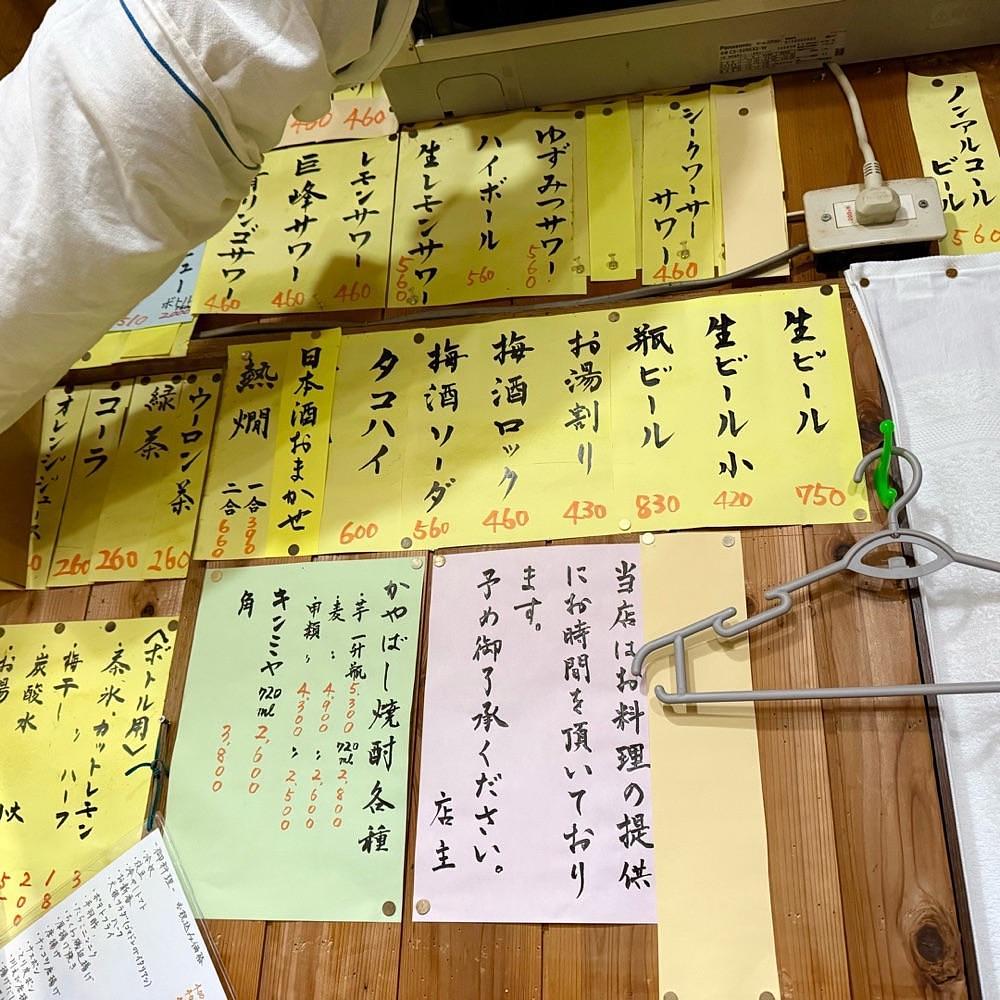 Panasonic
ノンアルコール
ビール
560
シークワーサー
サワー
460
ゆずみつサワー
560
ハイボール
560
生レモンサワー
560
レモンサワー
460
巨峰サワー
460
青リンゴサワー
460
460
460
ボトル
2000
生ビール
750
生ビール小
420
瓶ビール
830
お湯割り
430
梅酒ロック
460
梅酒ソーダ
560
タコハイ
600
日本酒おまかせ
熱燗
一合 390
二合 660
ウーロン茶
260
緑茶
260
コーラ
260
オレンジジュース
当店はお料理の提供
にお時間を頂いており
ます。
予め御了承ください。
店主
かやばし焼酎各種
・芋 一升瓶 5,300 720ml 2,800
・麦 〃 4,900 〃 2,600
・甲類 〃 4,300 〃 2,500
キンミヤ 720ml 2,600
角 3,800
〈ボトル用〉
・茶氷・カットレモン
・梅干し 〃 ハーフ
炭酸水
お湯
御料理
冷奴
冷やしトマト
お新香
ポテトフライ